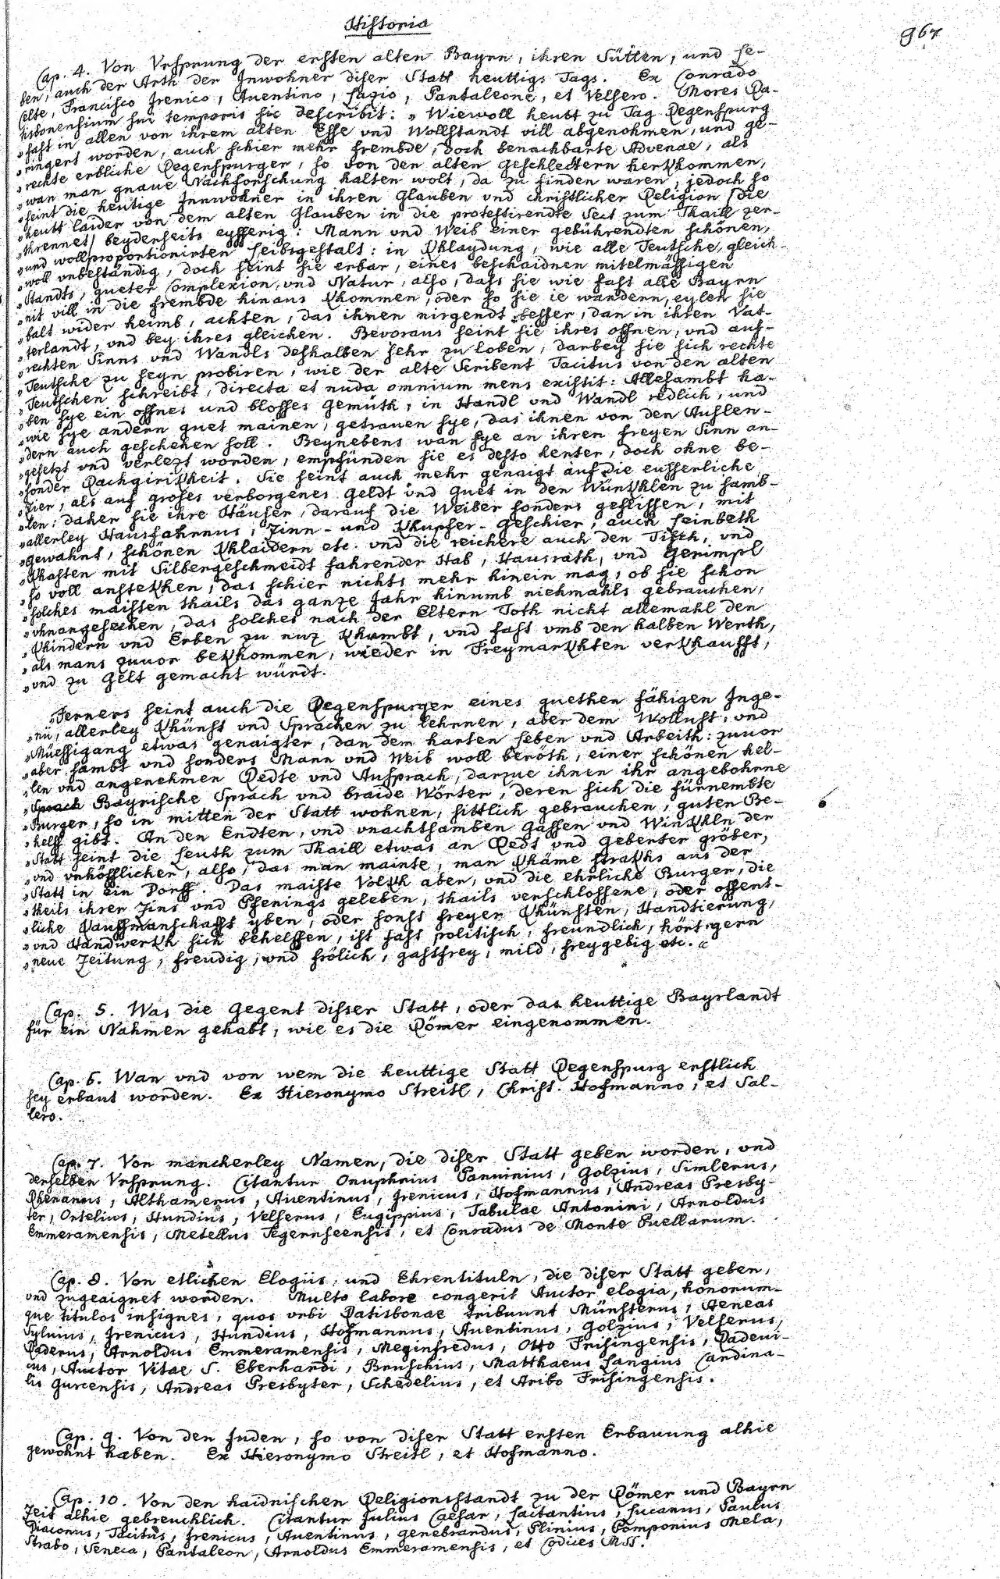 Historia
967
Cap. 4. Von Vrsprung der ersten alten Bayrn, ihren Sütten, und Se-
ben, auch der Arth der Inwohner diser Statt heuttigs Tags. Ex Conrado
Celte, Francisco Irenico, Auentino, Lazio, Pantaleone, et Velsero. Mores Ra-
tisbonensium sui temporis sic describit: „Wiewoll heubt zu Tag Regenspurg
„fast in allen von ihrem alten Esse vnd Wollstandt vill abgenohmen, und ge-
„ringert worden, auch schier mehr frembde, doch benachbarte Advenae, als
„rechte erbliche Regenspurger, so von den alten Geschlechtern herkhommen,
„wan man gnaue Nachforschung halten wolt, da zu finden waren, jedoch so
„seint die heutige Innwohner in ihren Glauben vnd christlicher Religion (die
„heutt laider von dem alten Glauben in die protestirendte Seit zum Thaill zer-
„thrennet) beyderseits eyfferig: Mann vnd Weib einer gebührendten schönen,
„und wollproportionirten Leibsgestalt: in Khlaydung, wie alle Teutsche, gleich-
„woll vnbeständig, doch seint sie erbar, eines beschaidnen mitelmässigen
„Standts, gueter Complexion, vnd Natur, also, dass sie wie fast alle Bayrn
„nit vill in die frembde hinaus khommen, oder so sie ie wandern, eylen sie
„balt wider heimb, achten, das ihnen nirgendt besser, dan in ihren Vat-
„terlandt, vnd bey ihres gleichen. Bevoraus seint sie ihres offnen, vnd auf-
„rechten Sinns vnd Wandls deshalben sehr zu loben, darbey sie sich rechte
„Teutsche zu seyn probiren, wie der alte Scribent Tacitus von den alten
„Teutschen schreibt, directa et nuda omnium mens existit: Allesambt ha-
„ben sye ein offnes und blosses Gemüth, in Handl vnd Wandl redlich, und
„wie sye andern guet mainen, getrauen sye, das ihnen von den Auslen-
„dern auch geschehen soll. Beynebens wan sye an ihren freyen Sinn an-
„gesetzt vnd verlezt worden, empfünden sie es desto henter, doch ohne be-
„sonder Rachgirikheit. Sie seint auch mehr genaigt auf die eusserliche
„Zier, als auf groses verborgenes Geldt vnd Guet in den Wünkhlen zu samb-
„len: daher sie ihre Häuser, darauf die Weiber sonders geflissen, mit
„allerley Hausfahrnus, Zinn- und Khupfer-Geschier, auch Feinbeth
„gewahnt, schönen Khlaidern etc. vnd die reichere auch den Tisch, vnd
„Khasten mit Silbergeschmeidt fahrender Hab, Hausrath, vnd Gerimpl
„so voll anstekhen, das schier nichts mehr hinein mag, ob sie schon
„solches maisten thails das ganze Jahr hinumb niehmahls gebrauchen,
„vhnangesehen, das solches nach der Eltern Toth nicht allemahl den
„Khindern vnd Erben zu nuz khumbt, vnd fast vmb den halben Werth,
„als mans zuuor bekhommen, wieder in Freymarkhten verkhaufft,
„vnd zu Gelt gemacht würdt.
„Ferners seint auch die Regenspurger eines guethen fähigen Inge-
„nii, allerley Khünst vnd Sprachen zu lehrnen, aber dem Wollust, vnd
„Müessigang etwas genaigter, dan dem harten Leben vnd Arbeith: zuuor
„aber sambt vnd sonders Mann vnd Weib woll beröth, einer schönen hel-
„len vnd angenehmen Redte vnd Aussprach, darzue ihnen ihr angebohrne
„Sprach Bayrische Sprach vnd braide Wörter, deren sich die fürnembste
„Burger, so in mitten der Statt wohnen, sittlich gebrauchen, guten Be-
„helff gibt. An den Endten, vnd vnachtsamben Gassen vnd Winkhln der
„Statt seint die Leuth zum Thaill etwas an Redt vnd Geberter gröber,
„vnd vnhöfflicher, also, das man mainte, man khäme strakhs aus der
„Statt in ein Dorff. Das maiste Volkh aber, vnd die ehrliche Burger, die
„theils ihrer Zins vnd Pfenings geleben, thails verschlossene, oder offent-
„liche Kauffmanschafft yben, oder sonst freyen Khünsten, Handtierung,
„vnd Handwerkh sich behelffen, ist fast politisch, freundlich, hört gern
„neue Zeitung, freudig, vnd frölich, gastfrey, mild, freygebig etc. “
Cap. 5. Was die Gegent disser Statt, oder das heuttige Bayrlandt
für ein Nahmen gehabt, wie es die Römer eingenommen.
Cap. 6. Wan vnd von wem die heuttige Statt Regenspurg erstlich
sey erbaut worden. Ex Hieronymo Streitl, Christ. Hofmanno, et Sal-
lero.
Cap. 7. Von mancherley Namen, die diser Statt geben worden, vnd
derselben Vrsprung. Citantur Onuphrius Panuinius, Golzius, Simlerus,
Rhenanus, Althamerus, Auentinus, Irenicus, Hofmannus, Andreas Presby-
ter, Ortelius, Hundius, Velserus, Eugippius, Tabulae Antonini, Arnoldus
Emmeramensis, Metellus Tegernseensis, et Conradus de Monte Puellarum.
Cap. 8. Von etlichen Elogiis, und Ehrentituln, die diser Statt geben,
vnd zugeaignet worden. Multo labore congerit Auctor elogia, honorum-
que titulos insignes, quos vrbi Ratisbonae tribuunt Münsterus, Aeneas
Syluius, Irenicus, Hundius, Hofmannus, Auentinus, Golzius, Velserus,
Raderus, Arnoldus Emmeramensis, Meginfredus, Otto Frisingensis, Radeui-
cus, Auctor Vitae S. Eberhardi, Bruschius, Matthaeus Langius Cardina-
lis Gurcensis, Andreas Presbyter, Schedelius, et Aribo Frisingensis.
Cap. 9. Von den Juden, so von diser Statt ersten Erbauung alhie
gewohnt haben. Ex Hieronymo Streitl, et Hofmanno.
Cap. 10. Von den haidnischen Religionsstandt zu der Römer und Bayrn
Zeit alhie gebreuchlich. Citantur Julius Caesar, Lactantius, Lucanus, Paulus
Diaconus, Tacitus, Irenicus, Auentinus, Genebrardus, Plinius, Pomponius Mela,
Strabo, Seneca, Pantaleon, Arnoldus Emmeramensis, et Codices MSS.